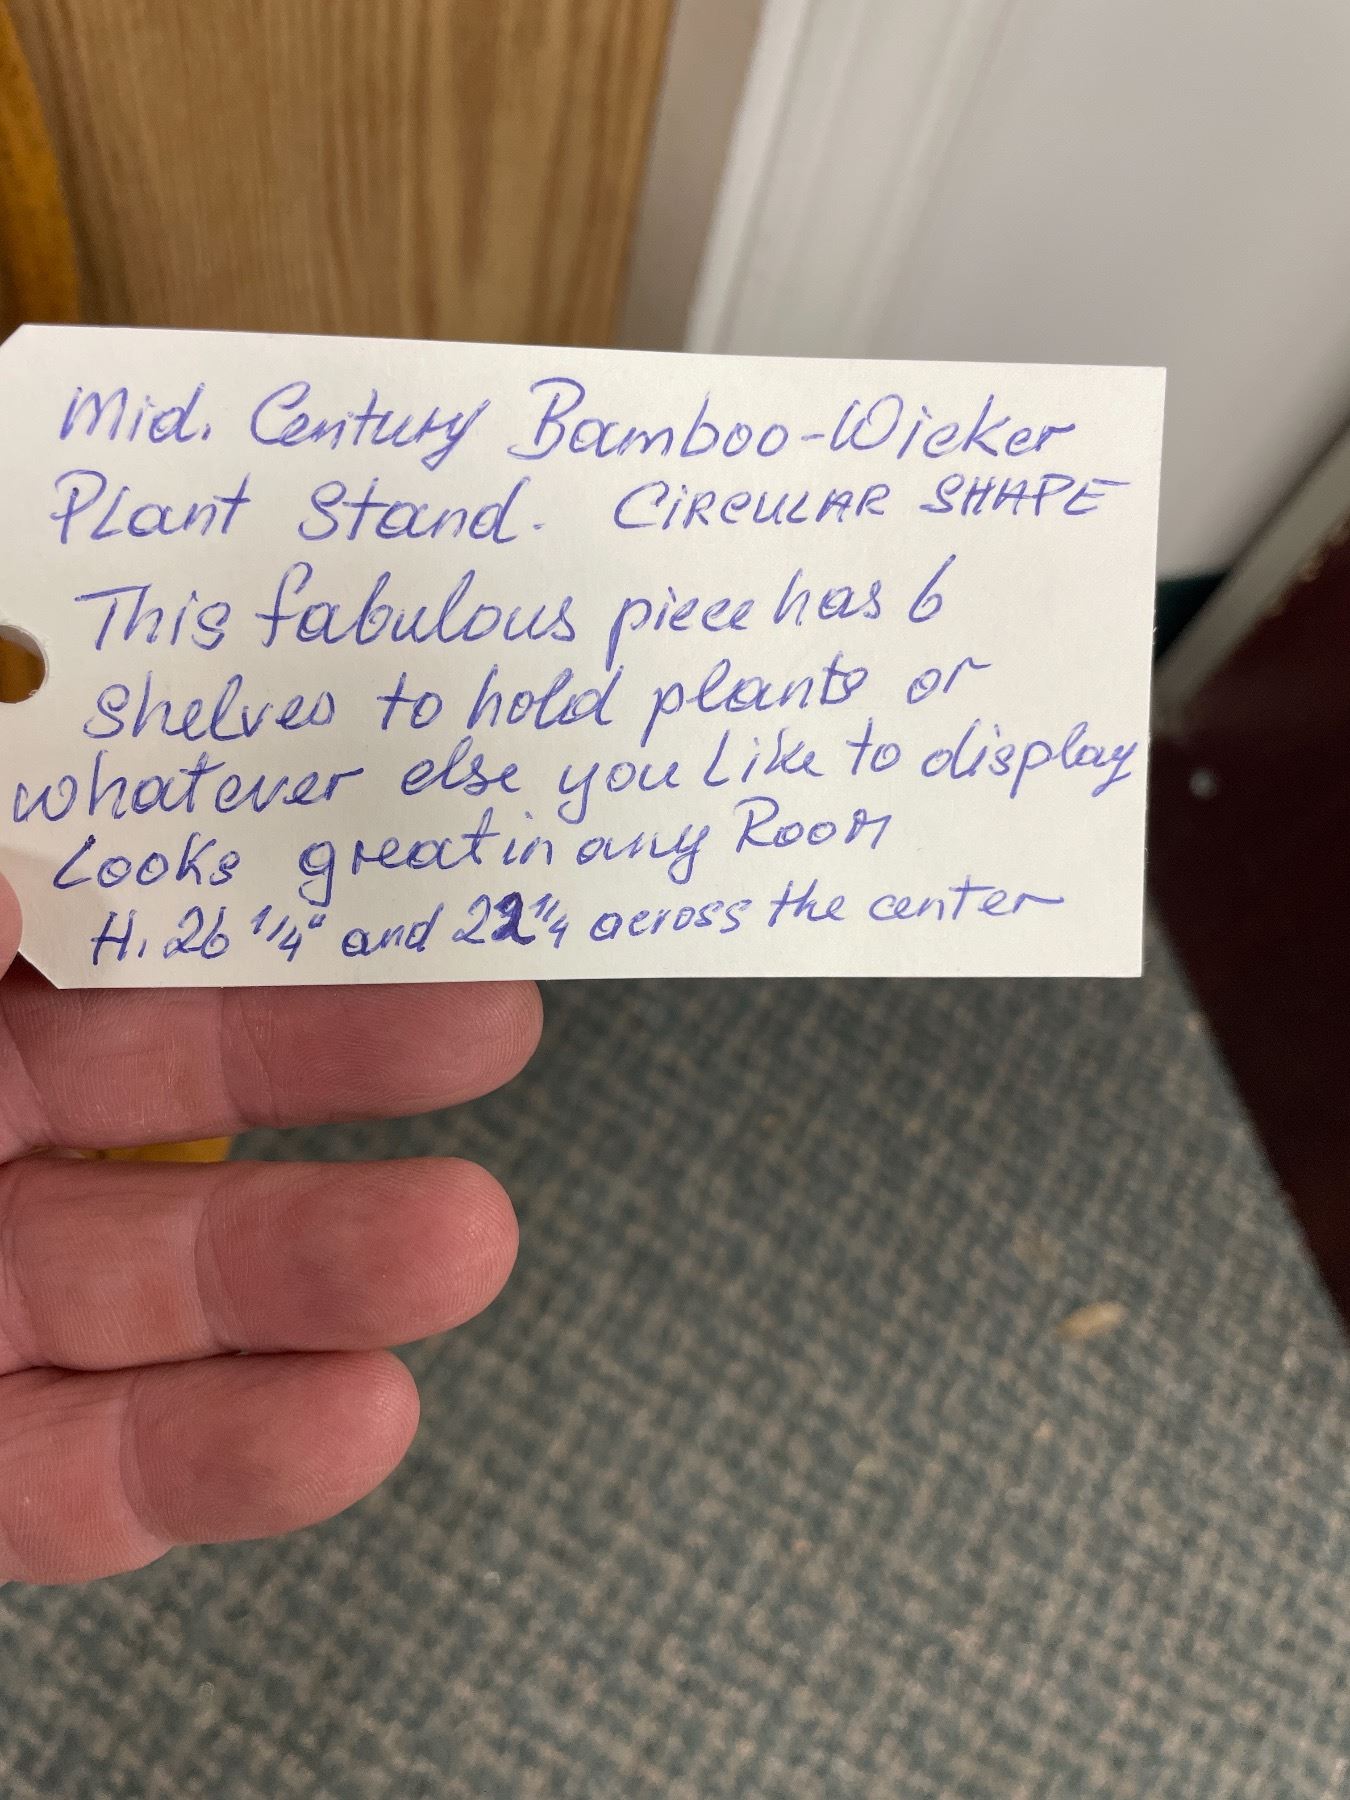 Mid. Century Bamboo-Wicker
Plant Stand. CIRCULAR SHAPE
This fabulous piece has 6
Shelves to hold plants or
whatever else you Like to display
Looks great in any Room
H. 26 1/4" and 22 1/4 across the center